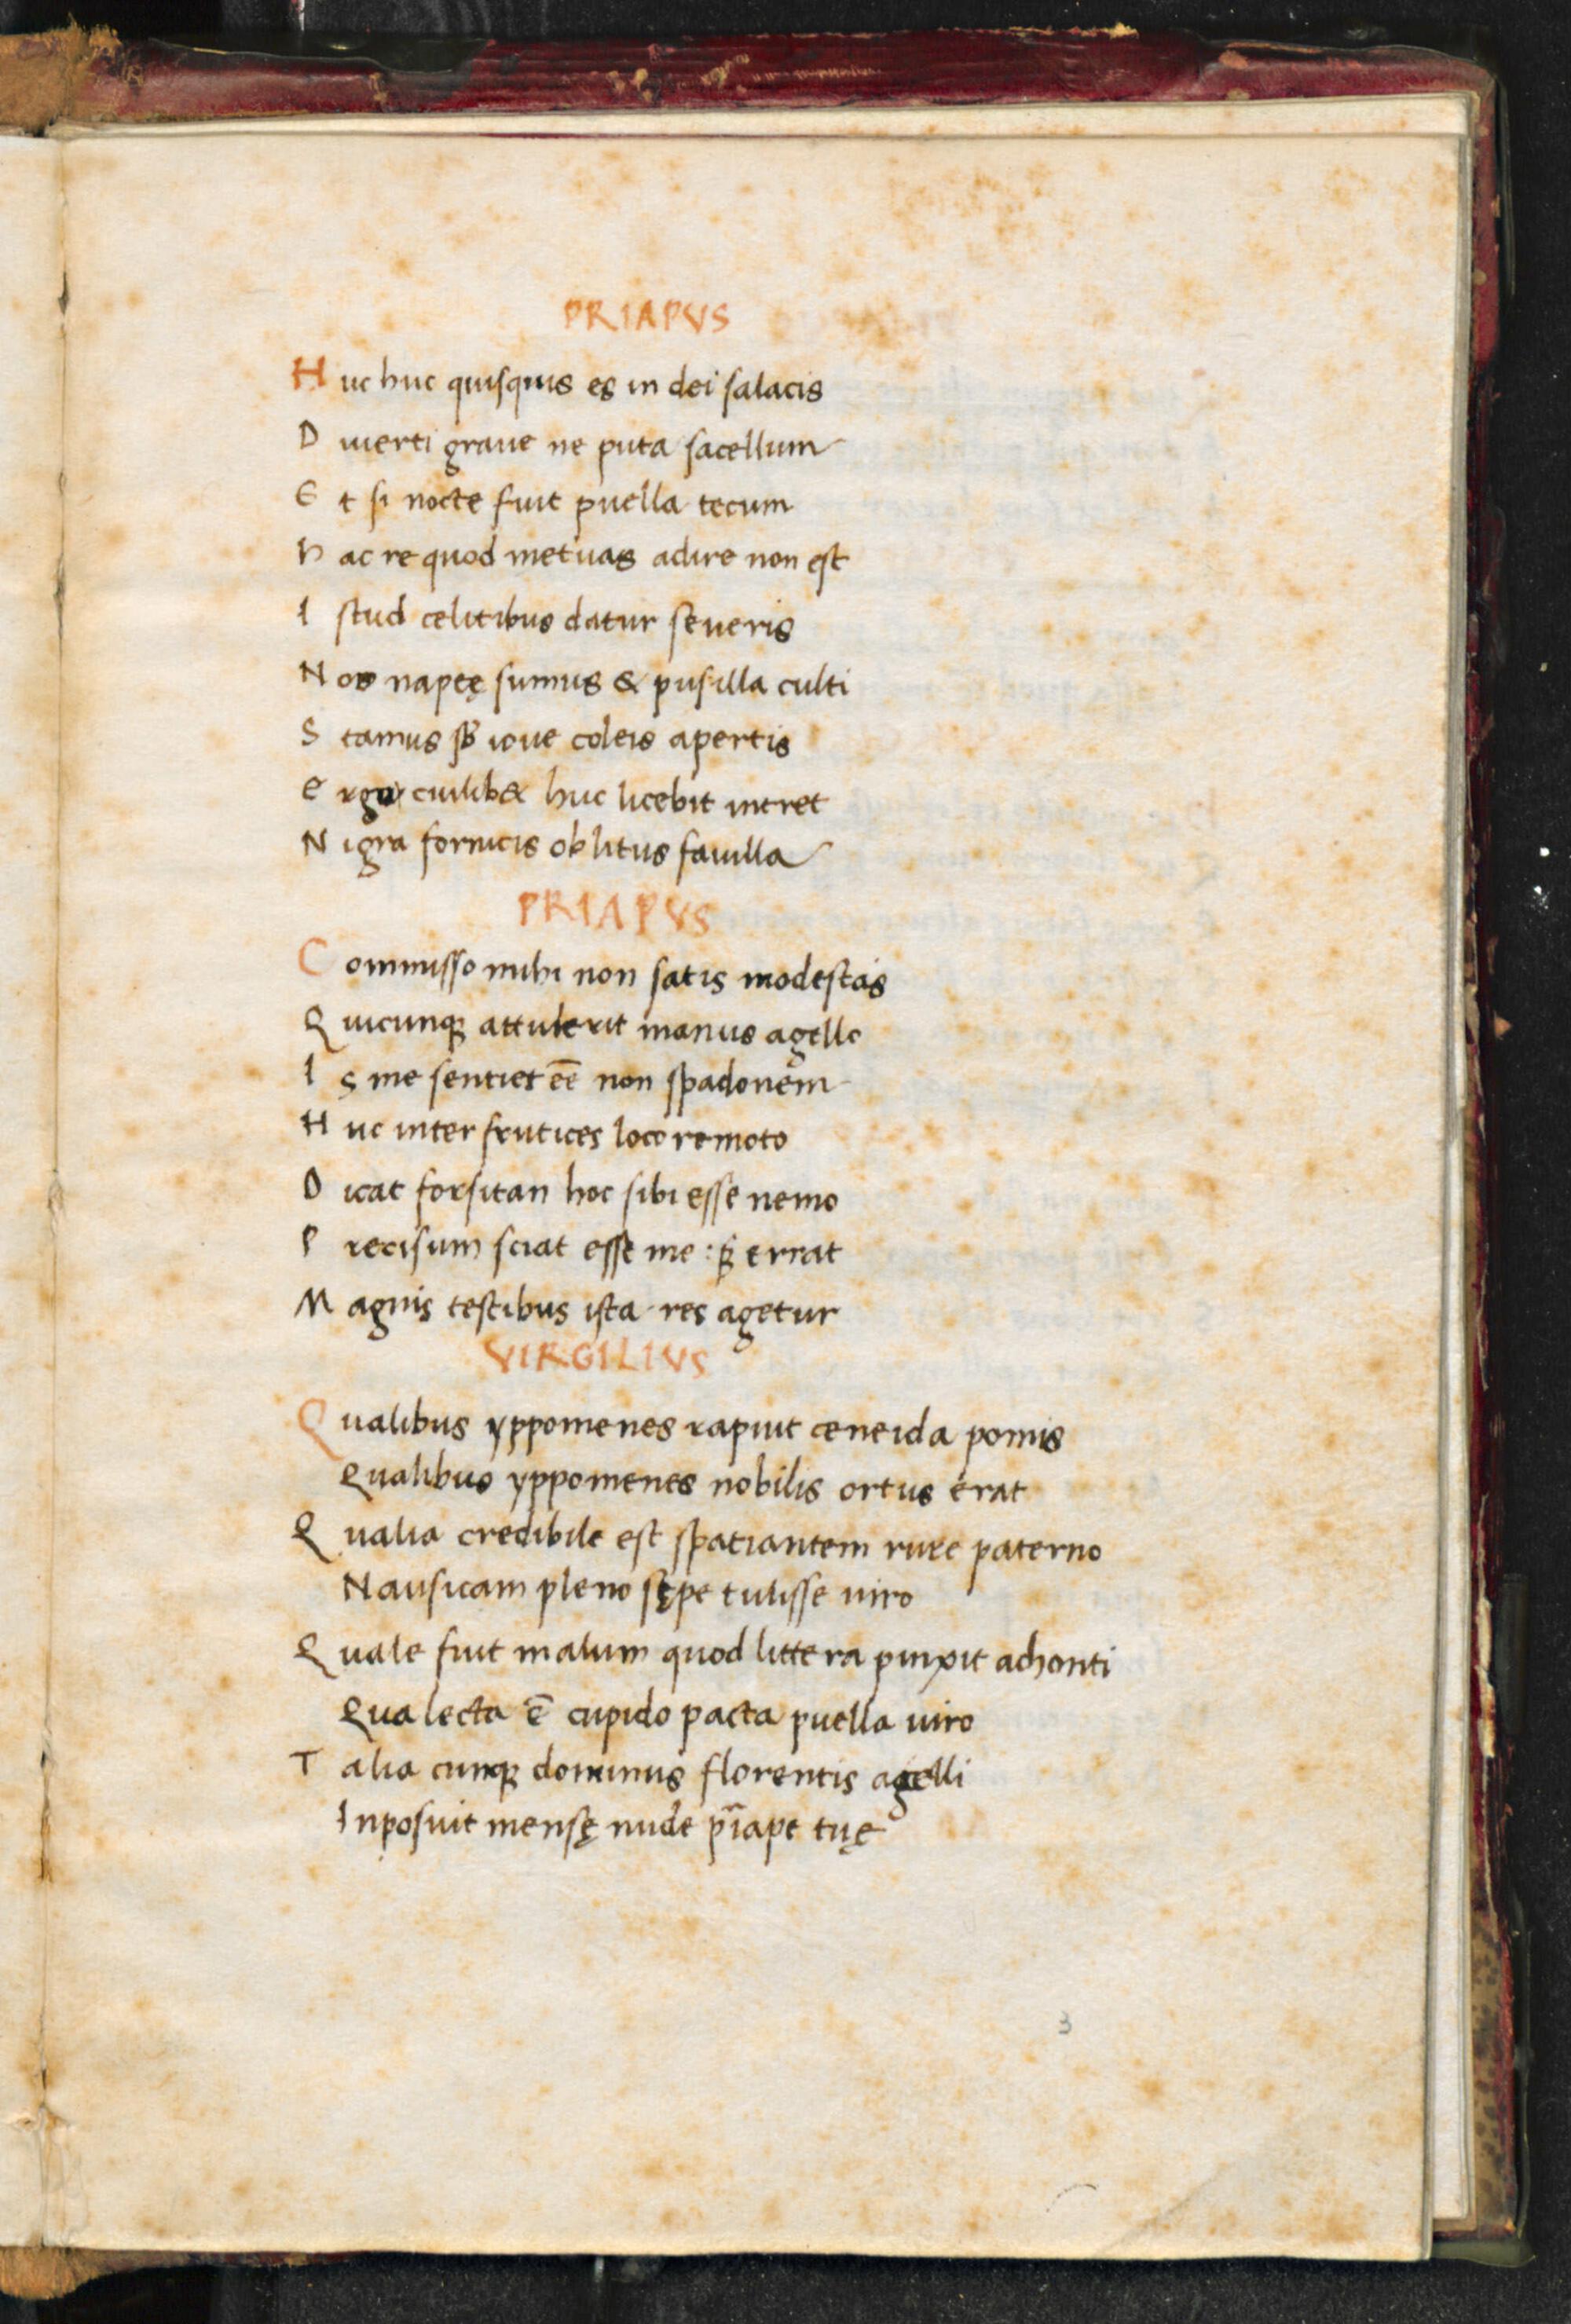 PRIAPVS
Huc huc quisquis es in dei salacis
Diuerti graue ne puta sacellum
Et si nocte fuit puella tecum
hac re quod metuas adire non est
Istud celitibus datur seueris
Nos naptę sumus & pusilla culti
Stamus sb̄ ioue coleis apertis
Ergo cuilib& huc licebit intret
Nigra fornicis oblitus fauilla
PRIAPVS
Commisso mihi non satis modestas
Quicunqꝫ attulerit manus agello
Is me sentiet eē non spadonem
Huc inter frutices loco remoto
Dicat forsitan hoc sibi esse nemo
Precisum sciat esse me : sꝫ errat
Magnis testibus ista res agetur
VIRGILIVS
Qualibus yppomenes rapuit ceneida pomis
Qualibus yppomenes nobilis ortus erat
Qualia credibile est spatiantem rure paterno
Nausicam pleno sępe tulisse uiro
Quale fuit malum quod littera pinxit achonti
Qua lecta ē cupido pacta puella uiro
Talia cunqꝫ dominus florentis agelli
Inposuit mensę nude pͥape tuę
3